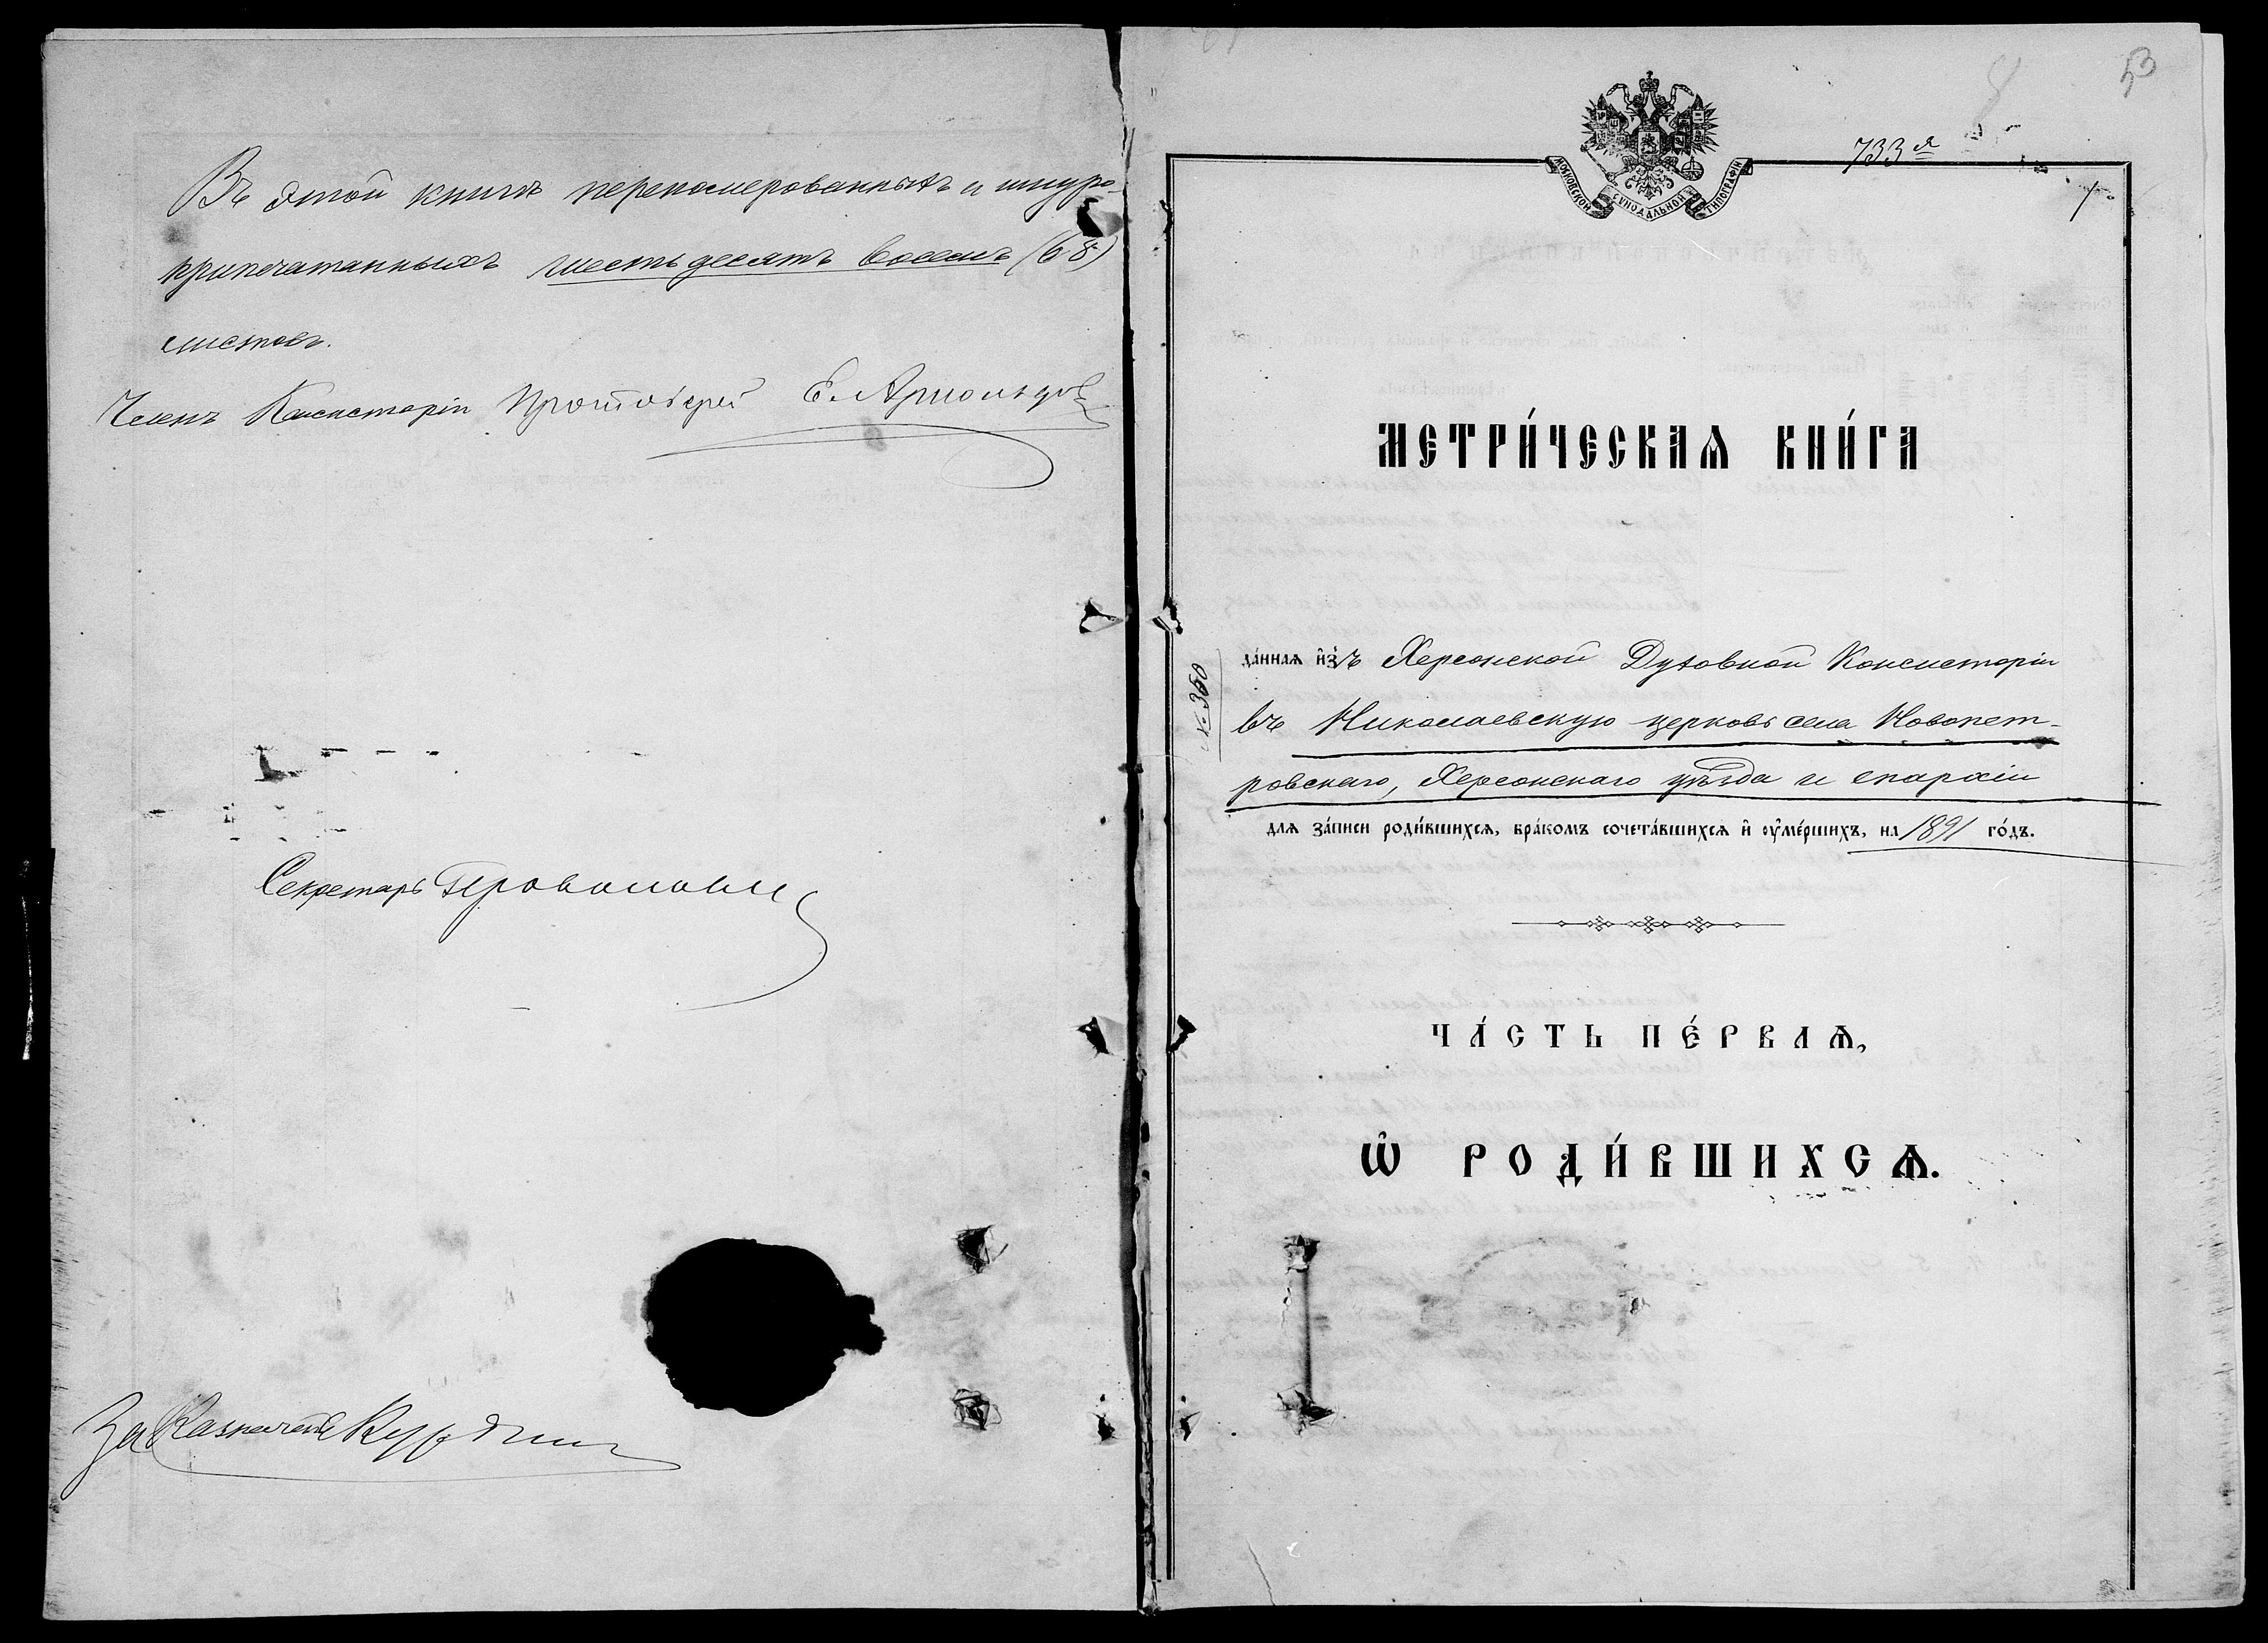 Въ этой книгѣ перенумерованныхъ и шнуро-
припечатанныхъ шестьдесятъ восемь (68)
листовъ.
Членъ Консисторіи Протоіерей Е. Арнольдовъ
Секретарь
За Казначея
53
8
733я
1
МОСКОВСКОЙ СѴНОДАЛЬНОЙ ТИПОГРАФІИ
МЕТРИ́ЧЕСКАѦ КНИ́ГА
№ 360
да́ннаѧ и҆зъ Херсонской Духовной Консисторіи
въ Николаевскую церковь села Новопет-
ровскаго, Херсонскаго уѣзда и епархіи
длѧ за́писи роди́вшихсѧ, бра́комъ сочета́вшихсѧ и҆ ᲂу҆ме́ршихъ, на 1891 го́дъ.
ЧА́СТЬ ПЕ́РВАѦ,
Ѡ҆ РОДИ́ВШИХСѦ.